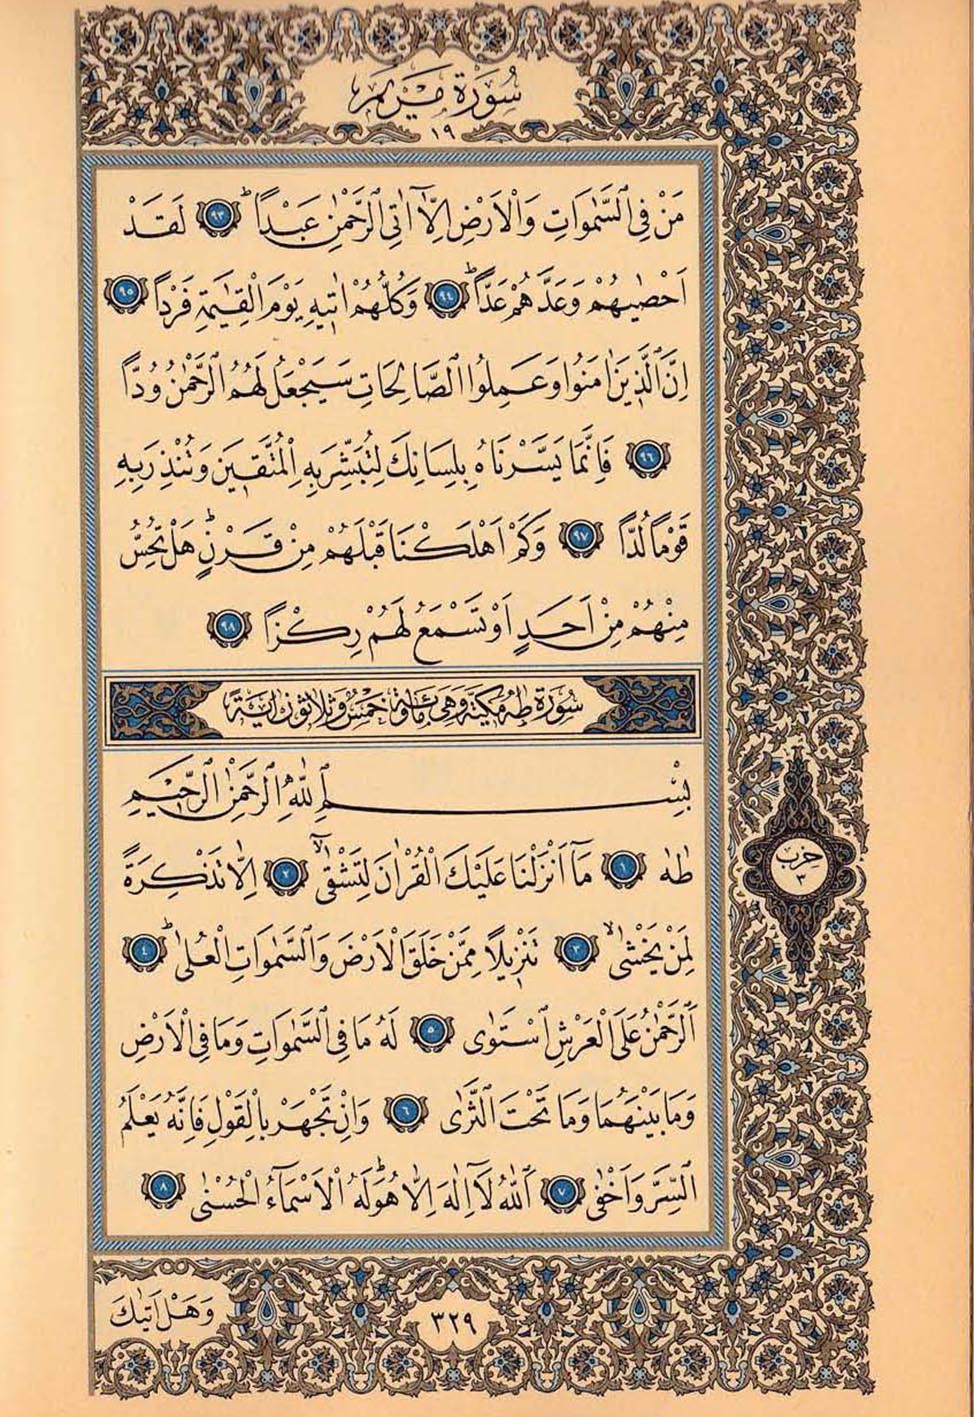 سُورَةُ مَرْيَمَ
١٩
مَنْ فِي السَّمٰوَاتِ وَالْاَرْضِ اِلَّٓا اٰتِي الرَّحْمٰنِ عَبْدًاۜ ﴿٩٣﴾ لَقَدْ
اَحْصٰيهُمْ وَعَدَّهُمْ عَدًّاۜ ﴿٩٤﴾ وَكُلُّهُمْ اٰتٖيهِ يَوْمَ الْقِيٰمَةِ فَرْدًا ﴿٩٥﴾
اِنَّ الَّذٖينَ اٰمَنُوا وَعَمِلُوا الصَّالِحَاتِ سَيَجْعَلُ لَهُمُ الرَّحْمٰنُ وُدًّا
﴿٩٦﴾ فَاِنَّمَا يَسَّرْنَاهُ بِلِسَانِكَ لِتُبَشِّرَ بِهِ الْمُتَّقٖينَ وَتُنْذِرَ بِهٖ
قَوْمًا لُدًّا ﴿٩٧﴾ وَكَمْ اَهْلَكْنَا قَبْلَهُمْ مِنْ قَرْنٍۜ هَلْ تُحِسُّ
مِنْهُمْ مِنْ اَحَدٍ اَوْ تَسْمَعُ لَهُمْ رِكْزًا ﴿٩٨﴾
سُورَةُ طٰهٰ مَكِّيَّةٌ وَهِيَ مِائَةٌ وَخَمْسٌ وَثَلَاثُونَ اٰيَةً
بِسْمِ اللّٰهِ الرَّحْمٰنِ الرَّحٖيمِ
طٰهٰ ﴿١﴾ مَٓا اَنْزَلْنَا عَلَيْكَ الْقُرْاٰنَ لِتَشْقٰىۙ ﴿٢﴾ اِلَّا تَذْكِرَةً
لِمَنْ يَخْشٰىۙ ﴿٣﴾ تَنْزٖيلًا مِمَّنْ خَلَقَ الْاَرْضَ وَالسَّمٰوَاتِ الْعُلٰىۜ ﴿٤﴾
اَلرَّحْمٰنُ عَلَى الْعَرْشِ اسْتَوٰى ﴿٥﴾ لَهُ مَا فِي السَّمٰوَاتِ وَمَا فِي الْاَرْضِ
وَمَا بَيْنَهُمَا وَمَا تَحْتَ الثَّرٰى ﴿٦﴾ وَاِنْ تَجْهَرْ بِالْقَوْلِ فَاِنَّهُ يَعْلَمُ
السِّرَّ وَاَخْفٰى ﴿٧﴾ اَللّٰهُ لَٓا اِلٰهَ اِلَّا هُوَۜ لَهُ الْاَسْمَٓاءُ الْحُسْنٰى ﴿٨﴾
حِزْب
٣
٣٢٩
وَهَلْ اَتٰيكَ